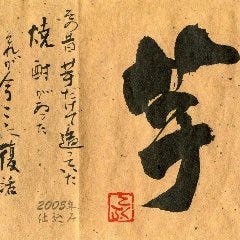 芋
その昔芋だけで造った
焼酎があった
それが今ここに復活
2008年
仕込み